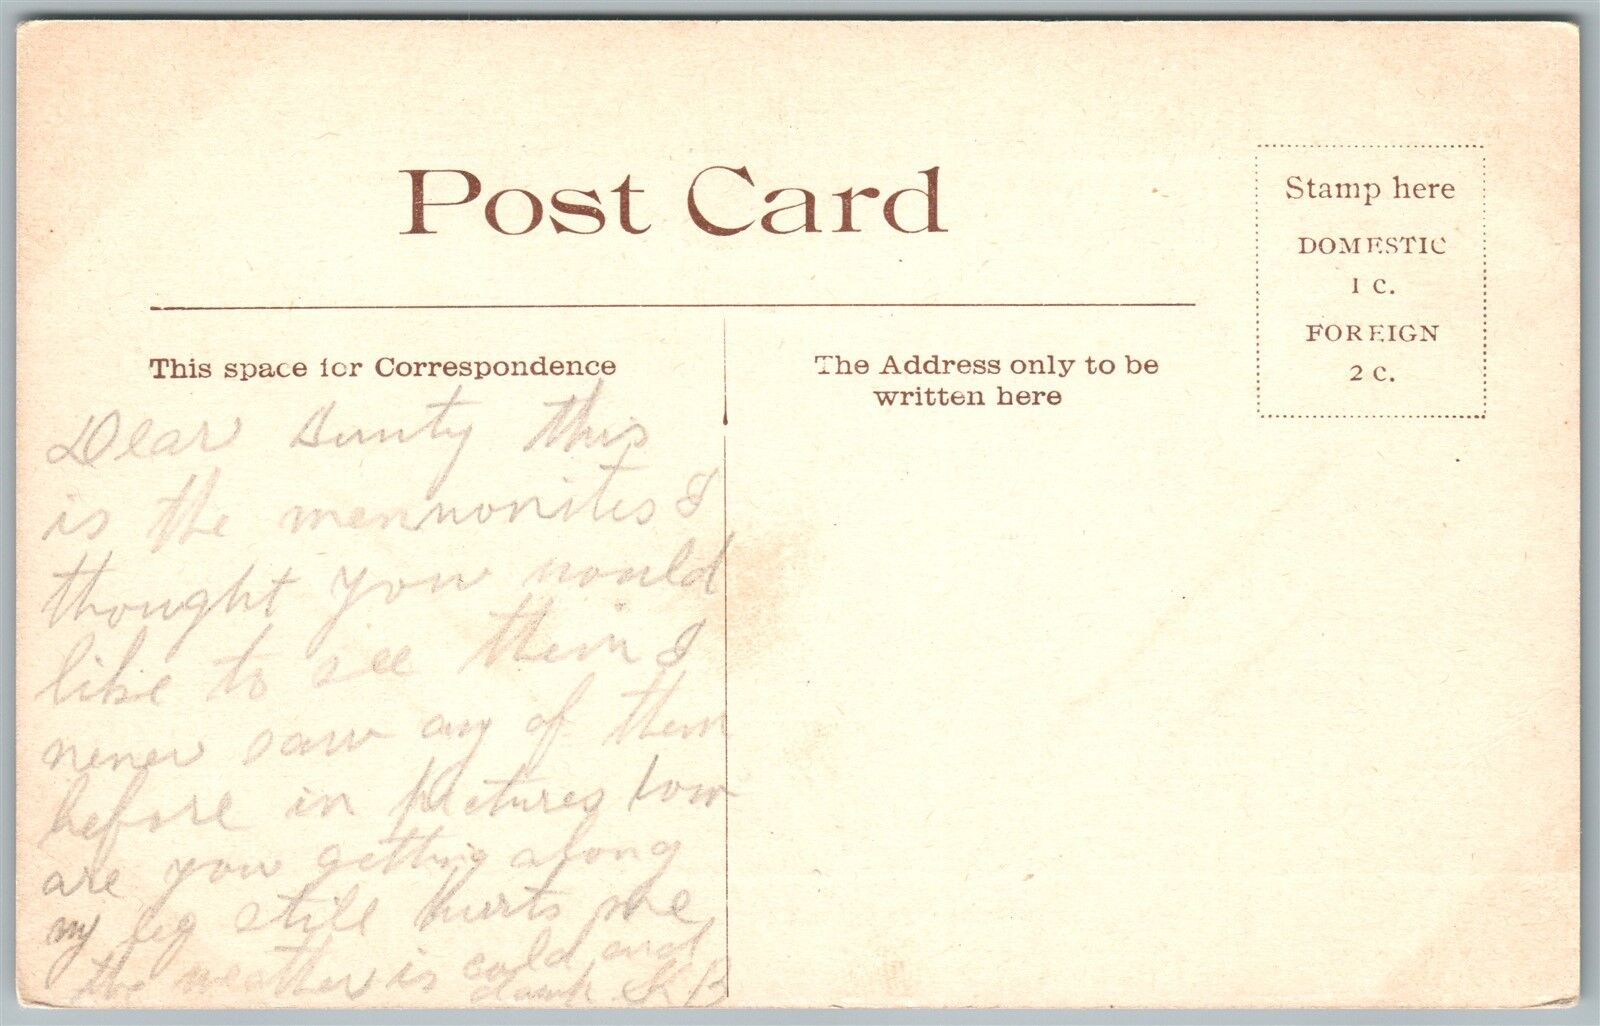 Post Card
Stamp here
DOMESTIC
1 C.
FOREIGN
2 C.
This space for Correspondence
The Address only to be
written here
Dear Aunty this
is the mennonites I
thought you would
like to see them I
never saw any of them
before in pictures how
are you getting along
my leg still hurts me
the weather is cold and
damp K B